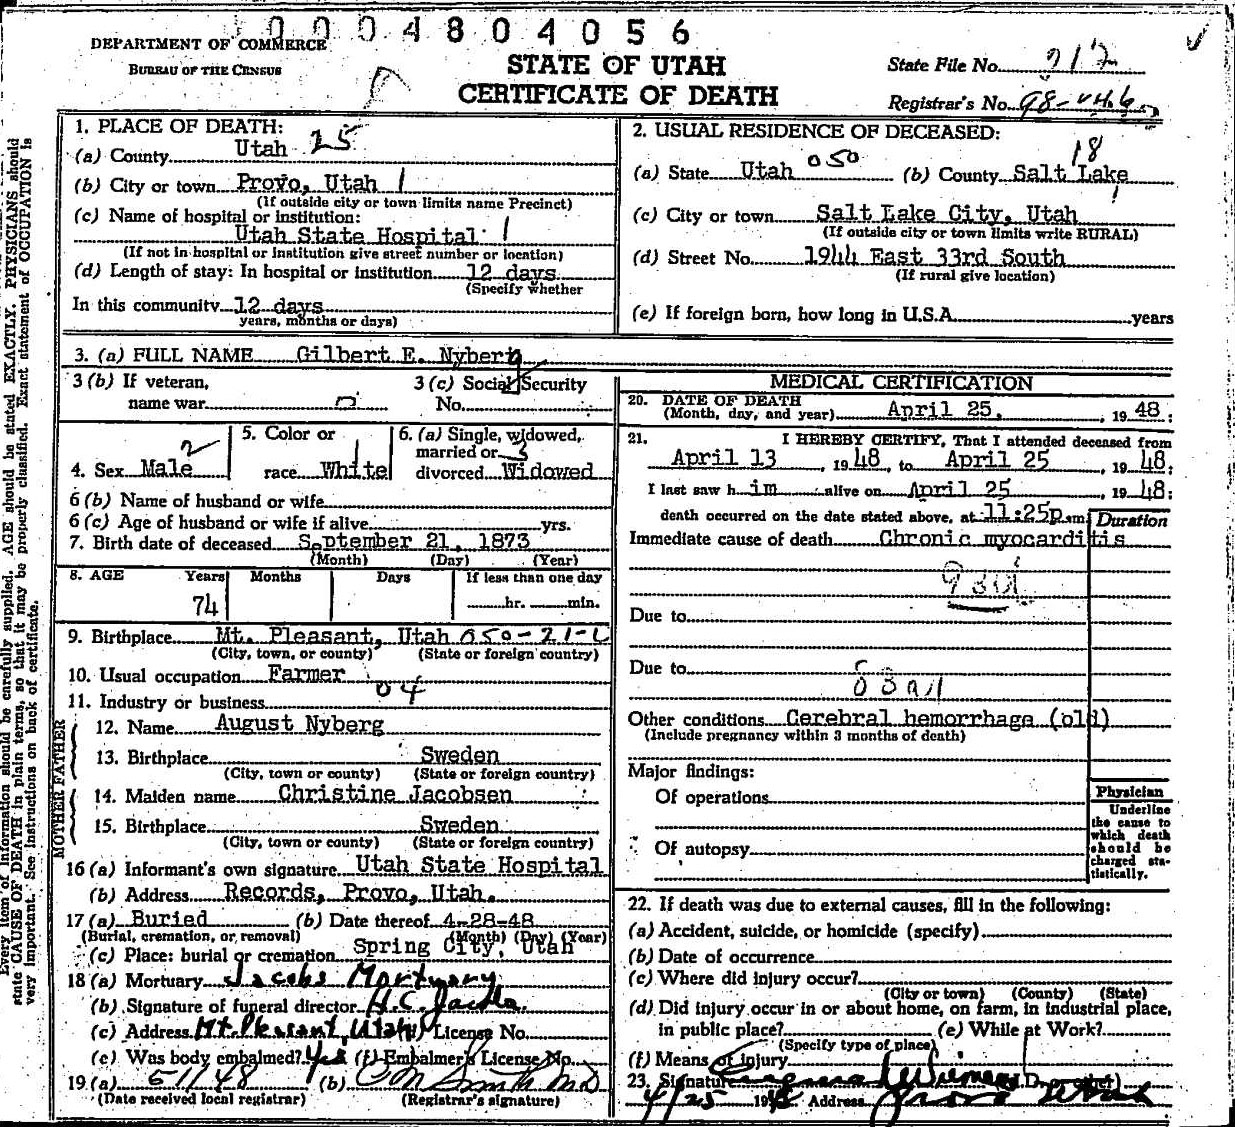 0004804056
DEPARTMENT OF COMMERCE
BUREAU OF THE CENSUS
STATE OF UTAH
CERTIFICATE OF DEATH
State File No.
Registrar's No.
Every item of information should be carefully supplied. AGE should be stated EXACTLY. PHYSICIANS should
state CAUSE OF DEATH in plain terms, so that it may be properly classified. Exact statement of OCCUPATION is
very important. See instructions on back of certificate.
1. PLACE OF DEATH:
(a) County Utah 25
(b) City or town Provo, Utah 1
(If outside city or town limits name Precinct)
(c) Name of hospital or institution:
Utah State Hospital 1
(If not in hospital or institution give street number or location)
(d) Length of stay: In hospital or institution 12 days
(Specify whether
In this community 12 days
years, months or days)
2. USUAL RESIDENCE OF DECEASED:
18
(a) State Utah 050 (b) County Salt Lake
1
(c) City or town Salt Lake City, Utah
(If outside city or town limits write RURAL)
(d) Street No. 1944 East 33rd South
(If rural give location)
(e) If foreign born, how long in U.S.A. years
3. (a) FULL NAME Gilbert E. Nyberg
3 (b) If veteran,
name war
3 (c) Social Security
No.
4. Sex Male 2
5. Color or
race White 1
6. (a) Single, widowed,
married or 3
divorced Widowed
6 (b) Name of husband or wife
6 (c) Age of husband or wife if alive yrs.
7. Birth date of deceased September 21, 1873
(Month) (Day) (Year)
8. AGE Years Months Days If less than one day
74 hr. min.
9. Birthplace Mt. Pleasant, Utah
(City, town, or county) (State or foreign country)
10. Usual occupation Farmer
04
11. Industry or business
FATHER
12. Name August Nyberg
13. Birthplace Sweden
(City, town or county) (State or foreign country)
MOTHER
14. Maiden name Christine Jacobsen
15. Birthplace Sweden
(City, town or county) (State or foreign country)
16 (a) Informant's own signature Utah State Hospital
(b) Address Records, Provo, Utah.
17 (a) Buried (b) Date thereof 4-28-48
(Burial, cremation, or removal) (Month) (Day) (Year)
(c) Place: burial or cremation Spring City, Utah
18 (a) Mortuary Jacobs Mortuary
(b) Signature of funeral director H.C. Jacobs
(c) Address Mt. Pleasant, Utah License No.
(e) Was body embalmed? Yes (f) Embalmer's License No.
19 (a) (b)
(Date received local registrar) (Registrar's signature)
MEDICAL CERTIFICATION
20. DATE OF DEATH
(Month, day, and year) April 25, 1948:
21. I HEREBY CERTIFY, That I attended deceased from
April 13, 1948, to April 25, 1948:
I last saw him alive on April 25, 1948:
death occurred on the date stated above, at 11:25p.m.
Duration
Immediate cause of death Chronic myocarditis
Due to
Due to
Other conditions Cerebral hemorrhage (old)
(Include pregnancy within 3 months of death)
Major findings:
Of operations
Of autopsy
Physician
Underline
the cause to
which death
should be
charged sta-
tistically.
22. If death was due to external causes, fill in the following:
(a) Accident, suicide, or homicide (specify)
(b) Date of occurrence
(c) Where did injury occur?
(City or town) (County) (State)
(d) Did injury occur in or about home, on farm, in industrial place,
in public place? (e) While at Work?
(Specify type of place)
(f) Means of injury
23. Signature
4/25 1948 Address Provo Utah